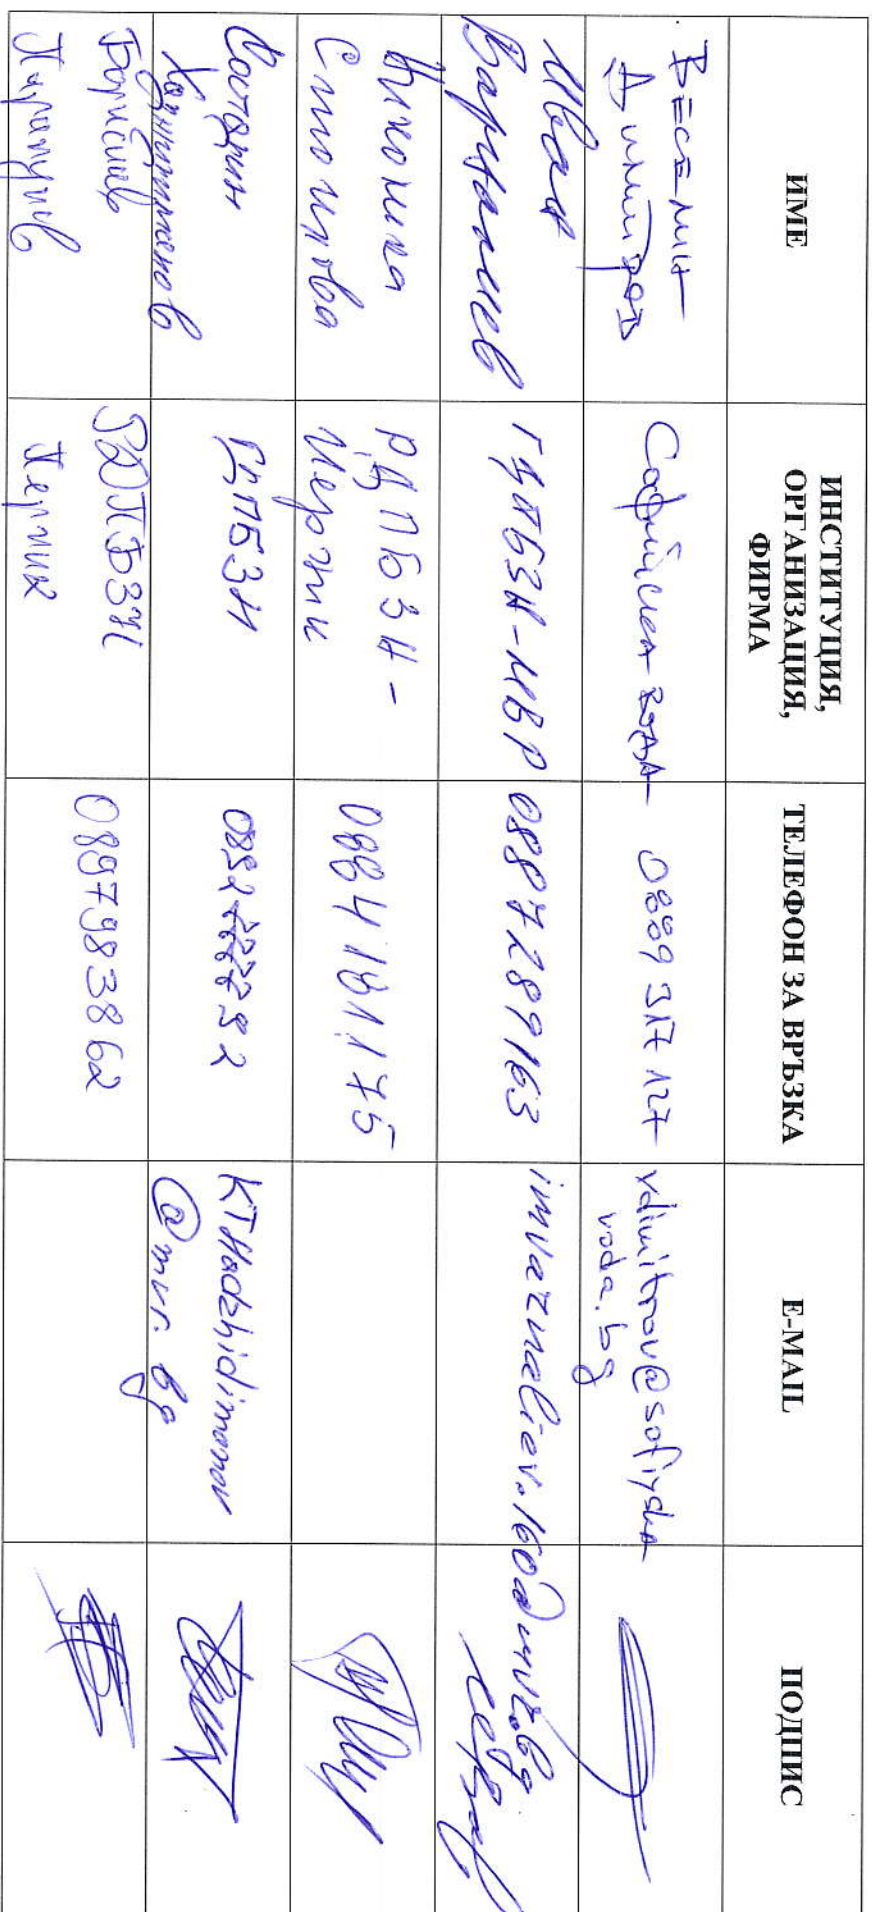 ИМЕ
ИНСТИТУЦИЯ,
ОРГАНИЗАЦИЯ,
ФИРМА
ТЕЛЕФОН ЗА ВРЪЗКА
E-MAIL
ПОДПИС
Веселин
Димитров
Софийска вода
0889 317 127
vdimitrov@sofiyska
voda.bg
Иван
Вармалиев
ГДПБЗН-МВР
0887289163
imvarmaliev.160@mvr.bg
Николина
Стоилова
РДПБЗН-
Перник
0884181175
Костадин
Хаджидиманов
ГДПБЗН
KTHadzhidimanov
@mvr.bg
Борислав
РДПБЗН
Перник
0897983862